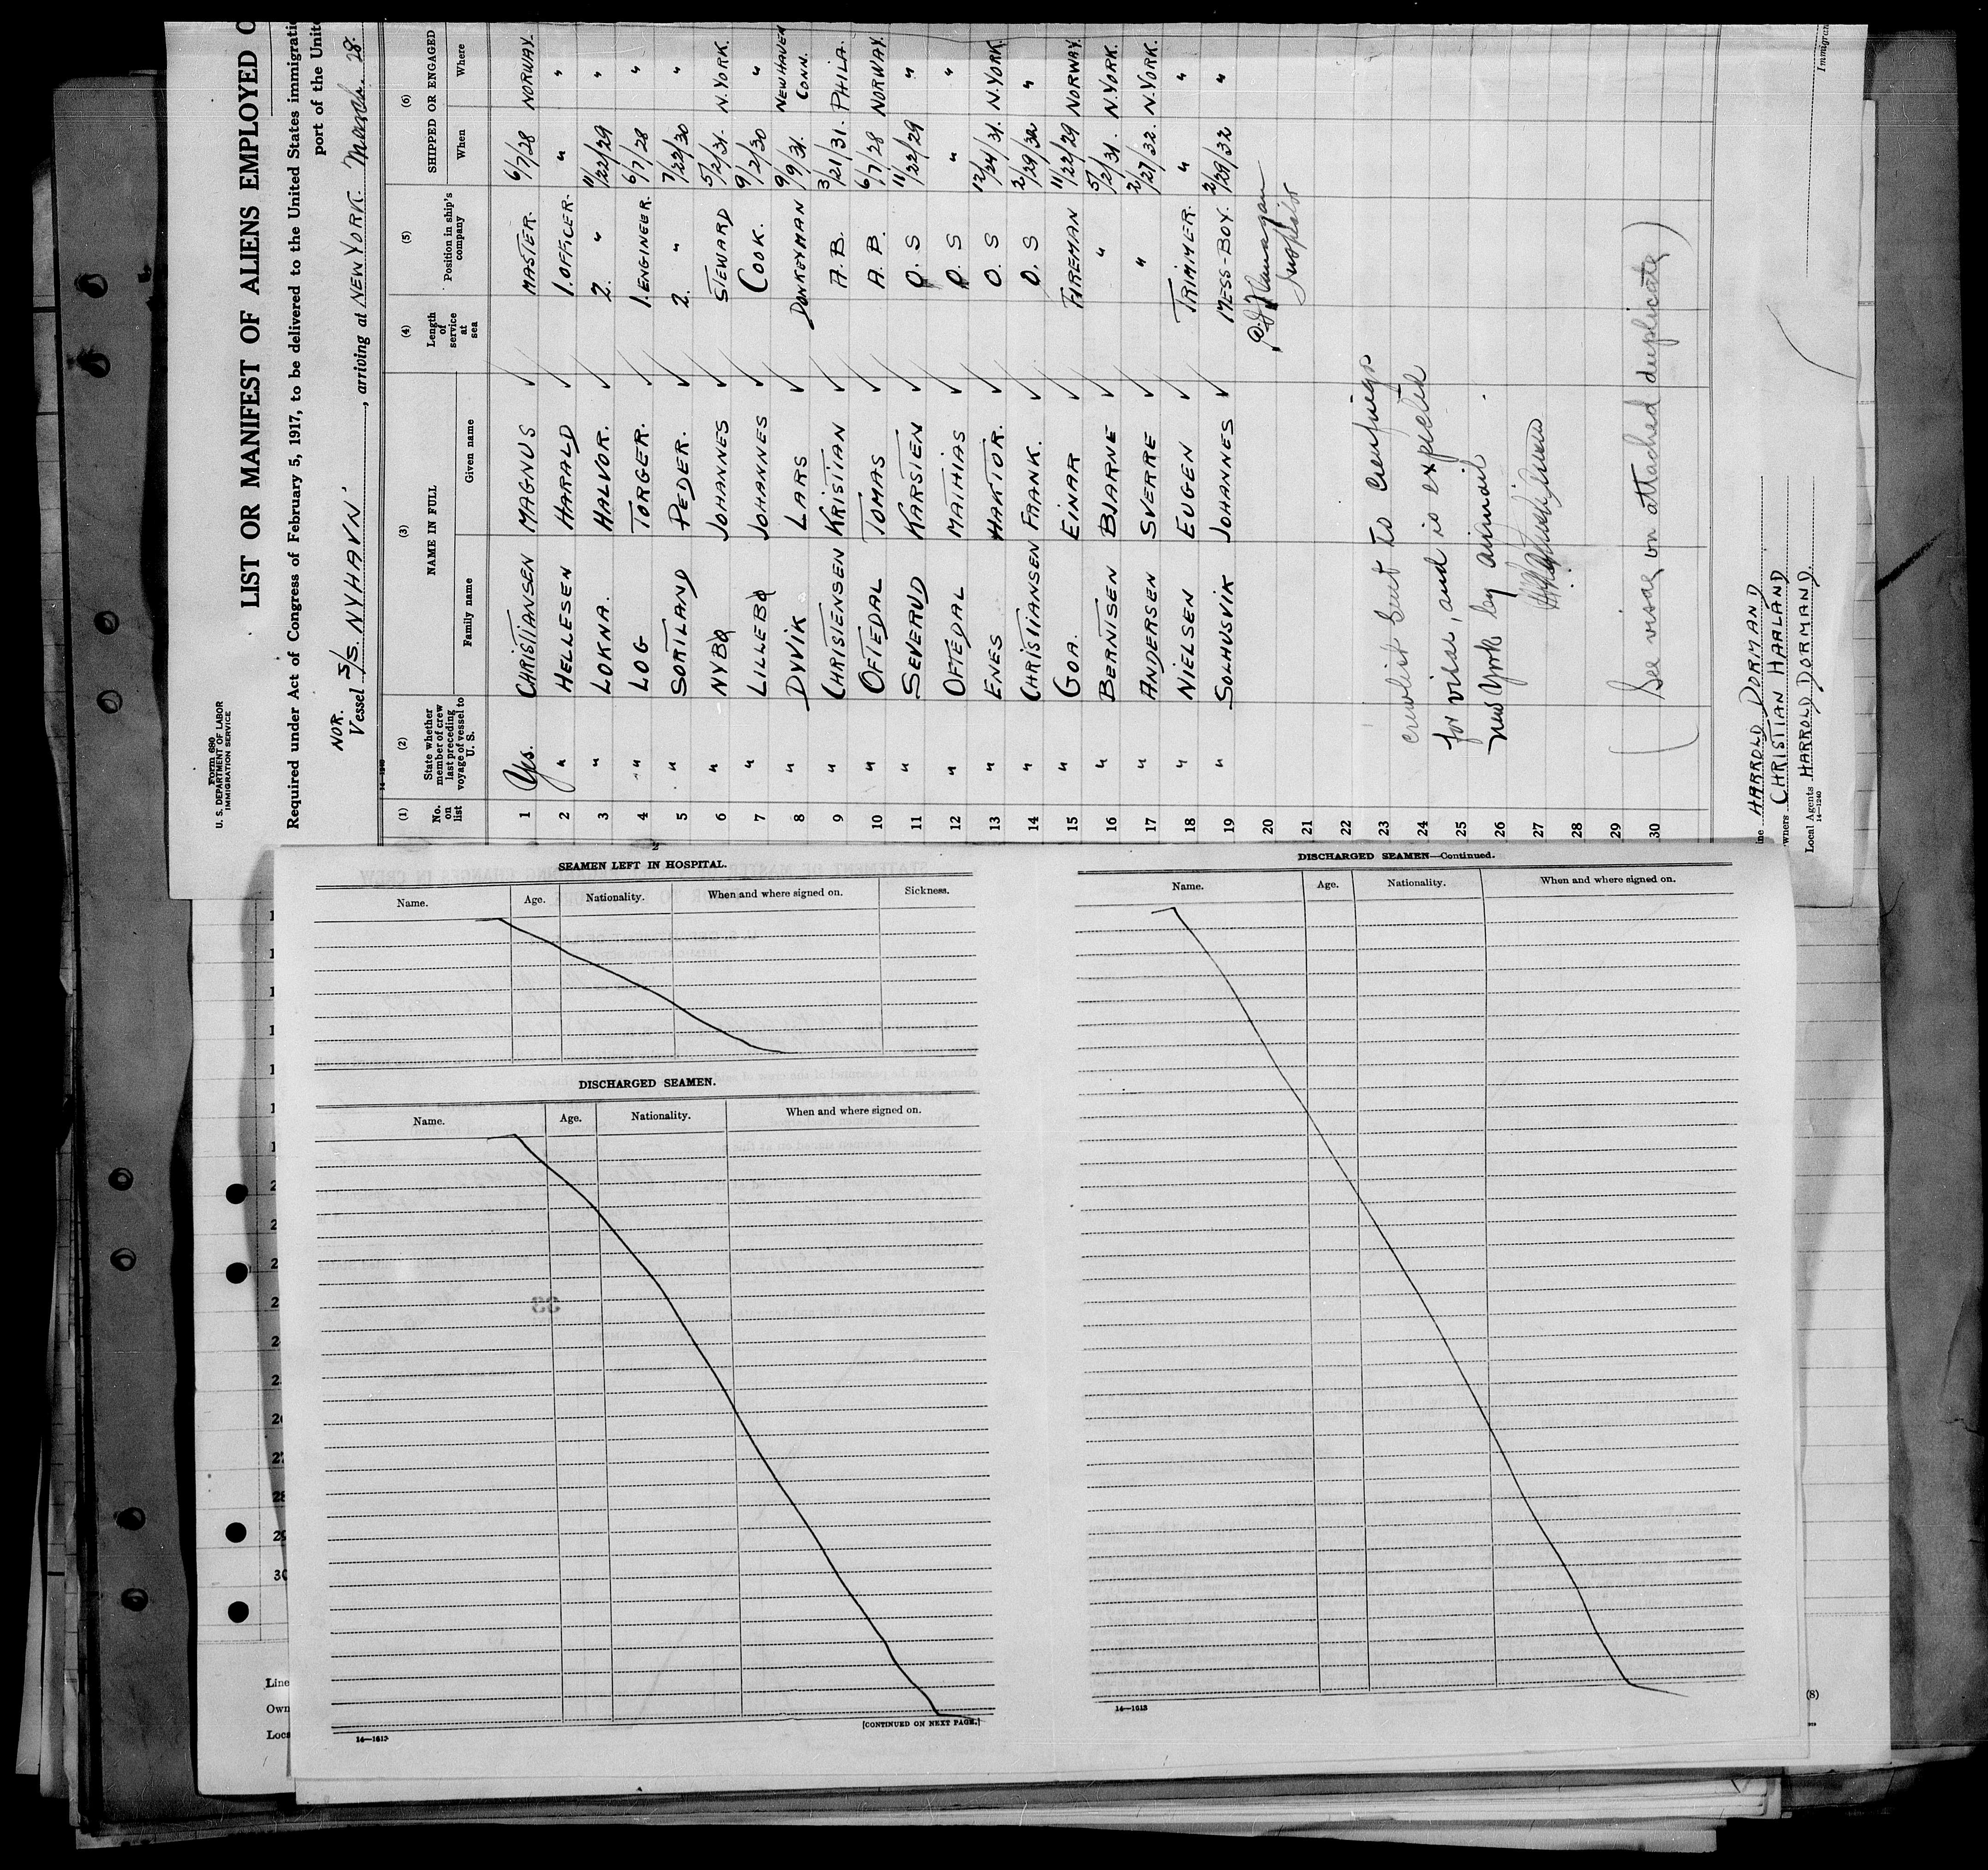 Form 680
U. S. DEPARTMENT OF LABOR
IMMIGRATION SERVICE
LIST OR MANIFEST OF ALIENS EMPLOYED O
Required under Act of Congress of February 5, 1917, to be delivered to the United States immigrati
port of the Unite
NOR.
Vessel S/S. NYHAVN , arriving at NEW YORK. March. 28.
14-1240
(1) (2) (3) (4) (5) (6)
No. on list State whether member of crew last preceding voyage of vessel to U. S. NAME IN FULL Length of service at sea Position in ship's company SHIPPED OR ENGAGED
Family name Given name When Where
1 Yes. CHRISTIANSEN MAGNUS ✓ MASTER. 6/7/28 NORWAY.
2 " HELLESEN HARALD ✓ 1. OFFICER. " "
3 " LOKNA. HALVOR. ✓ 2. " 11/22/29 "
4 " LOG TORGER. ✓ 1. ENGINEER. 6/7/28 "
5 " SORTLAND PEDER. ✓ 2. " 7/22/30 "
6 " NYBØ JOHANNES ✓ STEWARD 5/2/31. N. YORK.
7 " LILLEBØ JOHANNES ✓ COOK. 9/2/30 "
8 " DYVIK LARS ✓ DONKEYMAN 9/9/31. NEW HAVEN CONN.
9 " CHRISTENSEN KRISTIAN ✓ A. B. 3/21/31. PHILA.
10 " OFTEDAL TOMAS ✓ A. B. 6/7/28 NORWAY.
11 " SEVERUD KARSTEN ✓ O. S 11/22/29 "
12 " OFTEDAL MATHIAS ✓ O. S " "
13 " ENES HAKTOR. ✓ O. S 12/24/31. N. YORK.
14 " CHRISTIANSEN FRANK. ✓ O. S 2/29/32 "
15 " GOA. EINAR ✓ FIREMAN 11/22/29 NORWAY.
16 " BERNTSEN BJARNE ✓ " 5/2/31. N. YORK.
17 " ANDERSEN SVERRE ✓ " 2/27/32. N. YORK.
18 " NIELSEN EUGEN ✓ TRIMMER. " "
19 " SOLHUSVIK JOHANNES ✓ MESS-BOY. 2/29/32 "
20
21 Inspector
22
23
24
25
26
27
28
29
30
crewlist sent to Cienfuegos
for visa, and is expected
New York by airmail.
(See visa on attached duplicate)
ne HARROLD DORMAND
wners CHRISTIAN HAALAND
Local Agents HARROLD DORMAND.
14-1240
Immigran
SEAMEN LEFT IN HOSPITAL.
Name. Age. Nationality. When and where signed on. Sickness.
DISCHARGED SEAMEN.
Name. Age. Nationality. When and where signed on.
[CONTINUED ON NEXT PAGE.]
14—1613
DISCHARGED SEAMEN—Continued.
Name. Age. Nationality. When and where signed on.
14—1613
27
28
29
30
Line
Own
Loca
(8)